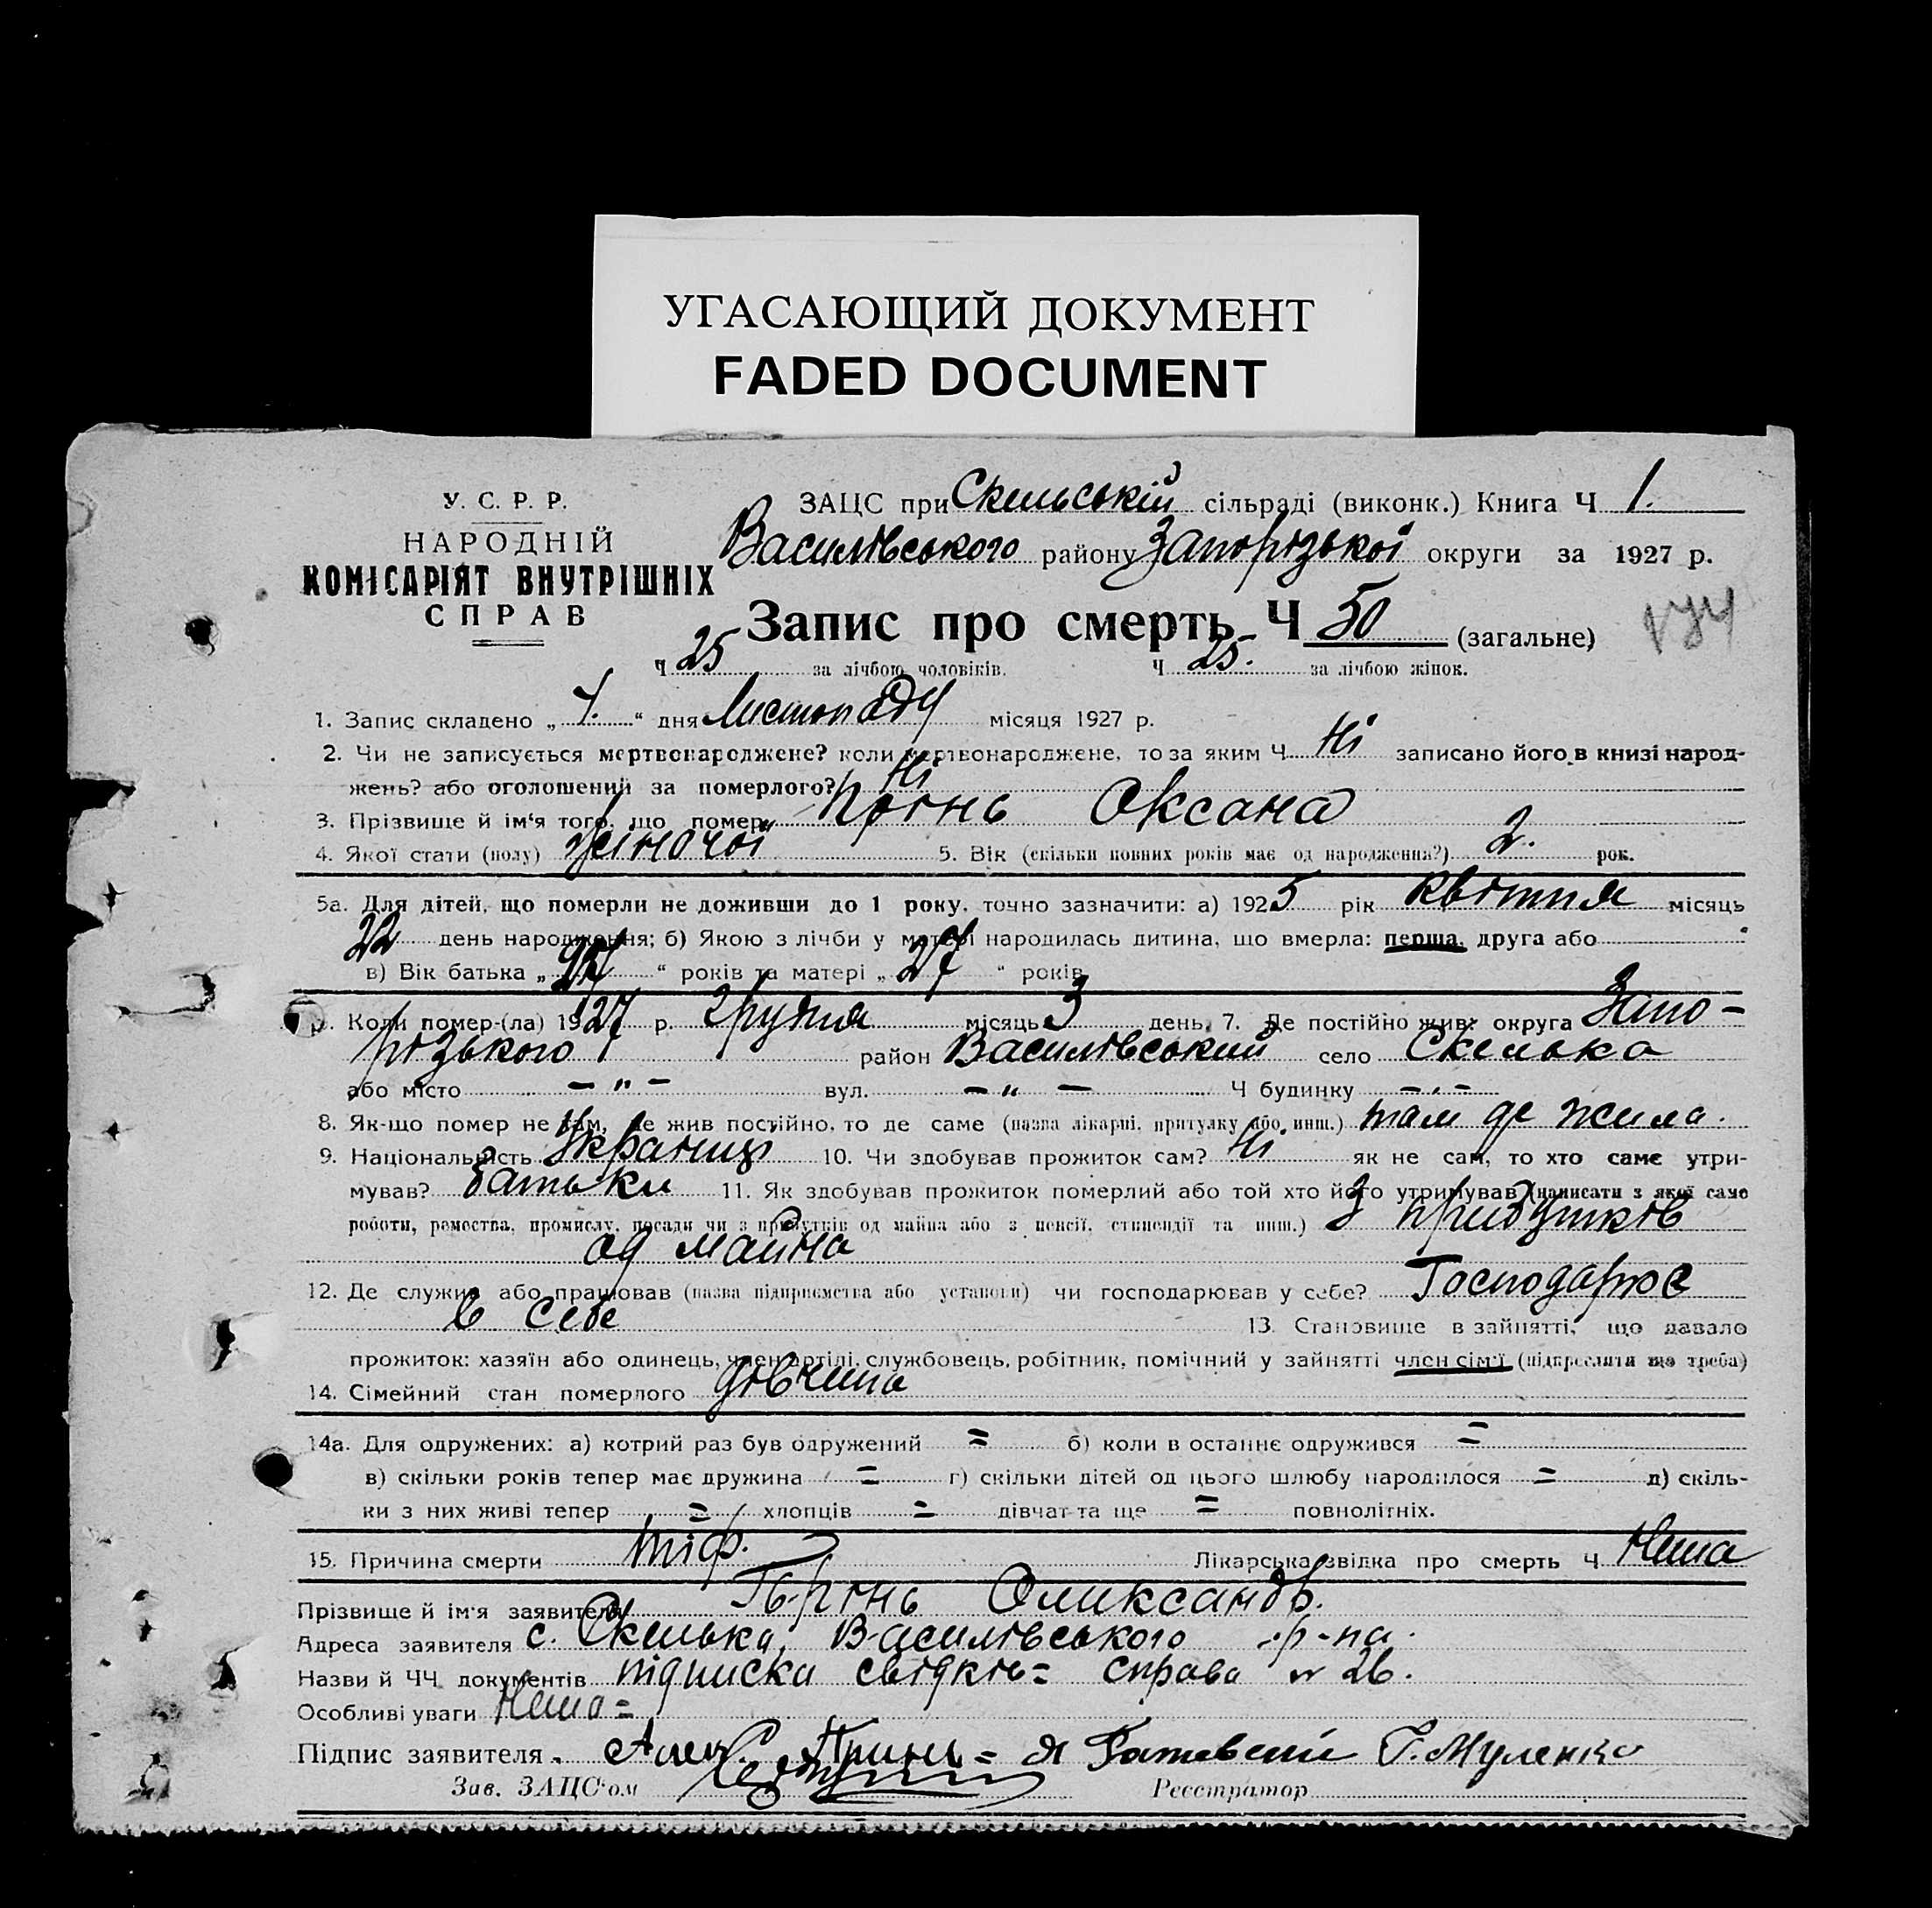 УГАСАЮЩИЙ ДОКУМЕНТ
FADED DOCUMENT
У. С. Р. Р.
НАРОДНІЙ
КОМІСАРІЯТ ВНУТРІШНІХ
СПРАВ
ЗАЦС при Скельській сільраді (виконк.) Книга Ч 1.
Василівського району Запорізької округи за 1927 р.
Запис про смерть Ч 50 (загальне)
Ч 25 за лічбою чоловіків. Ч 25. за лічбою жінок.
1. Запис складено „ “ дня Листопаду місяця 1927 р.
2. Чи не записується мертвонароджене? коли мертвонароджене, то за яким Ч Ні записано його в книзі народ-
жень? або оголошений за померлого? Ні
3. Прізвище й ім'я того, що помер Оксана
4. Якої стати (полу) жіночої 5. Вік (скільки повних років має од народження?) 2. рок.
5а. Для дітей, що померли не доживши до 1 року, точно зазначити: а) 1925 рік квітня місяць
22 день народження; б) Якою з лічби у матері народилась дитина, що вмерла: перша, друга або
в) Вік батька „ “ років та матері „ 27 “ років
р. Коли помер-(ла) 1927 р. грудня місяць 3 день, 7. Де постійно жив: округа Запо-
різького район Василівський село Скелька
або місто — " — вул. — " — Ч будинку — " —
8. Як-що помер не там, де жив постійно, то де саме (назва лікарні, притулку або инш.) там де жила.
9. Національність 10. Чи здобував прожиток сам? Ні як не сам, то хто саме утри-
мував? батьки 11. Як здобував прожиток померлий або той хто його утримував (написати з якої саме
роботи, ремества, промислу, посади чи з прибутків од майна або з пенсії, стипендії та инш.) З прибутків
од майна
12. Де служив або працював (назва підприємства або установи) чи господарював у себе? Господарює
в себе 13. Становище в зайнятті, що давало
прожиток: хазяїн або одинець, член артілі, службовець, робітник, помічний у зайнятті член сім'ї (підкреслити що треба)
14. Сімейний стан померлого дівчина
14а. Для одружених: а) котрий раз був одружений = б) коли в останнє одружився =
в) скільки років тепер має дружина = г) скільки дітей од цього шлюбу народилося = д) скіль-
ки з них живі тепер = хлопців = дівчат та ще = повнолітніх.
15. Причина смерти тіф. Лікарська звідка про смерть Ч Нема
Прізвище й ім'я заявителя Олександр.
Адреса заявителя с. Скелька, Василівського р-на.
Назви й ЧЧ документів підписка свідків = справа № 26.
Особливі уваги Нема =
Підпис заявителя
Зав. ЗАЦС'ом Реєстратор